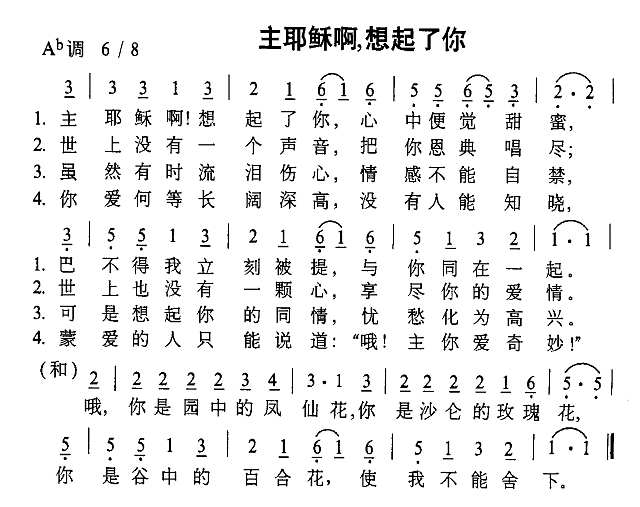 主耶稣啊,想起了你
A♭调 6/8
3 | 3 3 1 3 | 2 1 6 1 6 | 5 5 6 5 3 | 2 · 2 |
1. 主 耶稣啊!想 起了你, 心 中便觉 甜 蜜,
2. 世 上没有一 个声音, 把 你恩典 唱 尽;
3. 虽 然有时流 泪伤心, 情 感不能 自 禁,
4. 你 爱何等长 阔深高, 没 有人能 知 晓,
3 | 5 5 1 3 | 2 1 6 1 6 | 5 1 3 2 | 1 · 1 |
1. 巴 不得我立 刻被提, 与 你同在一 起。
2. 世 上也没有 一颗心, 享 尽你的爱 情。
3. 可 是想起你 的同情, 忧 愁化为高 兴。
4. 蒙 爱的人只 能说道: “哦! 主你爱奇 妙!”
(和) 2 | 2 2 2 2 3 4 | 3 · 1 3 | 2 2 2 2 1 6 | 5 · 5 |
哦, 你是园中的凤 仙花,你 是沙仑的玫瑰 花,
5 | 5 5 1 3 | 2 1 6 1 6 | 5 3 · 2 2 | 1 · 1 ‖
你 是谷中的 百合花, 使 我不能舍 下。